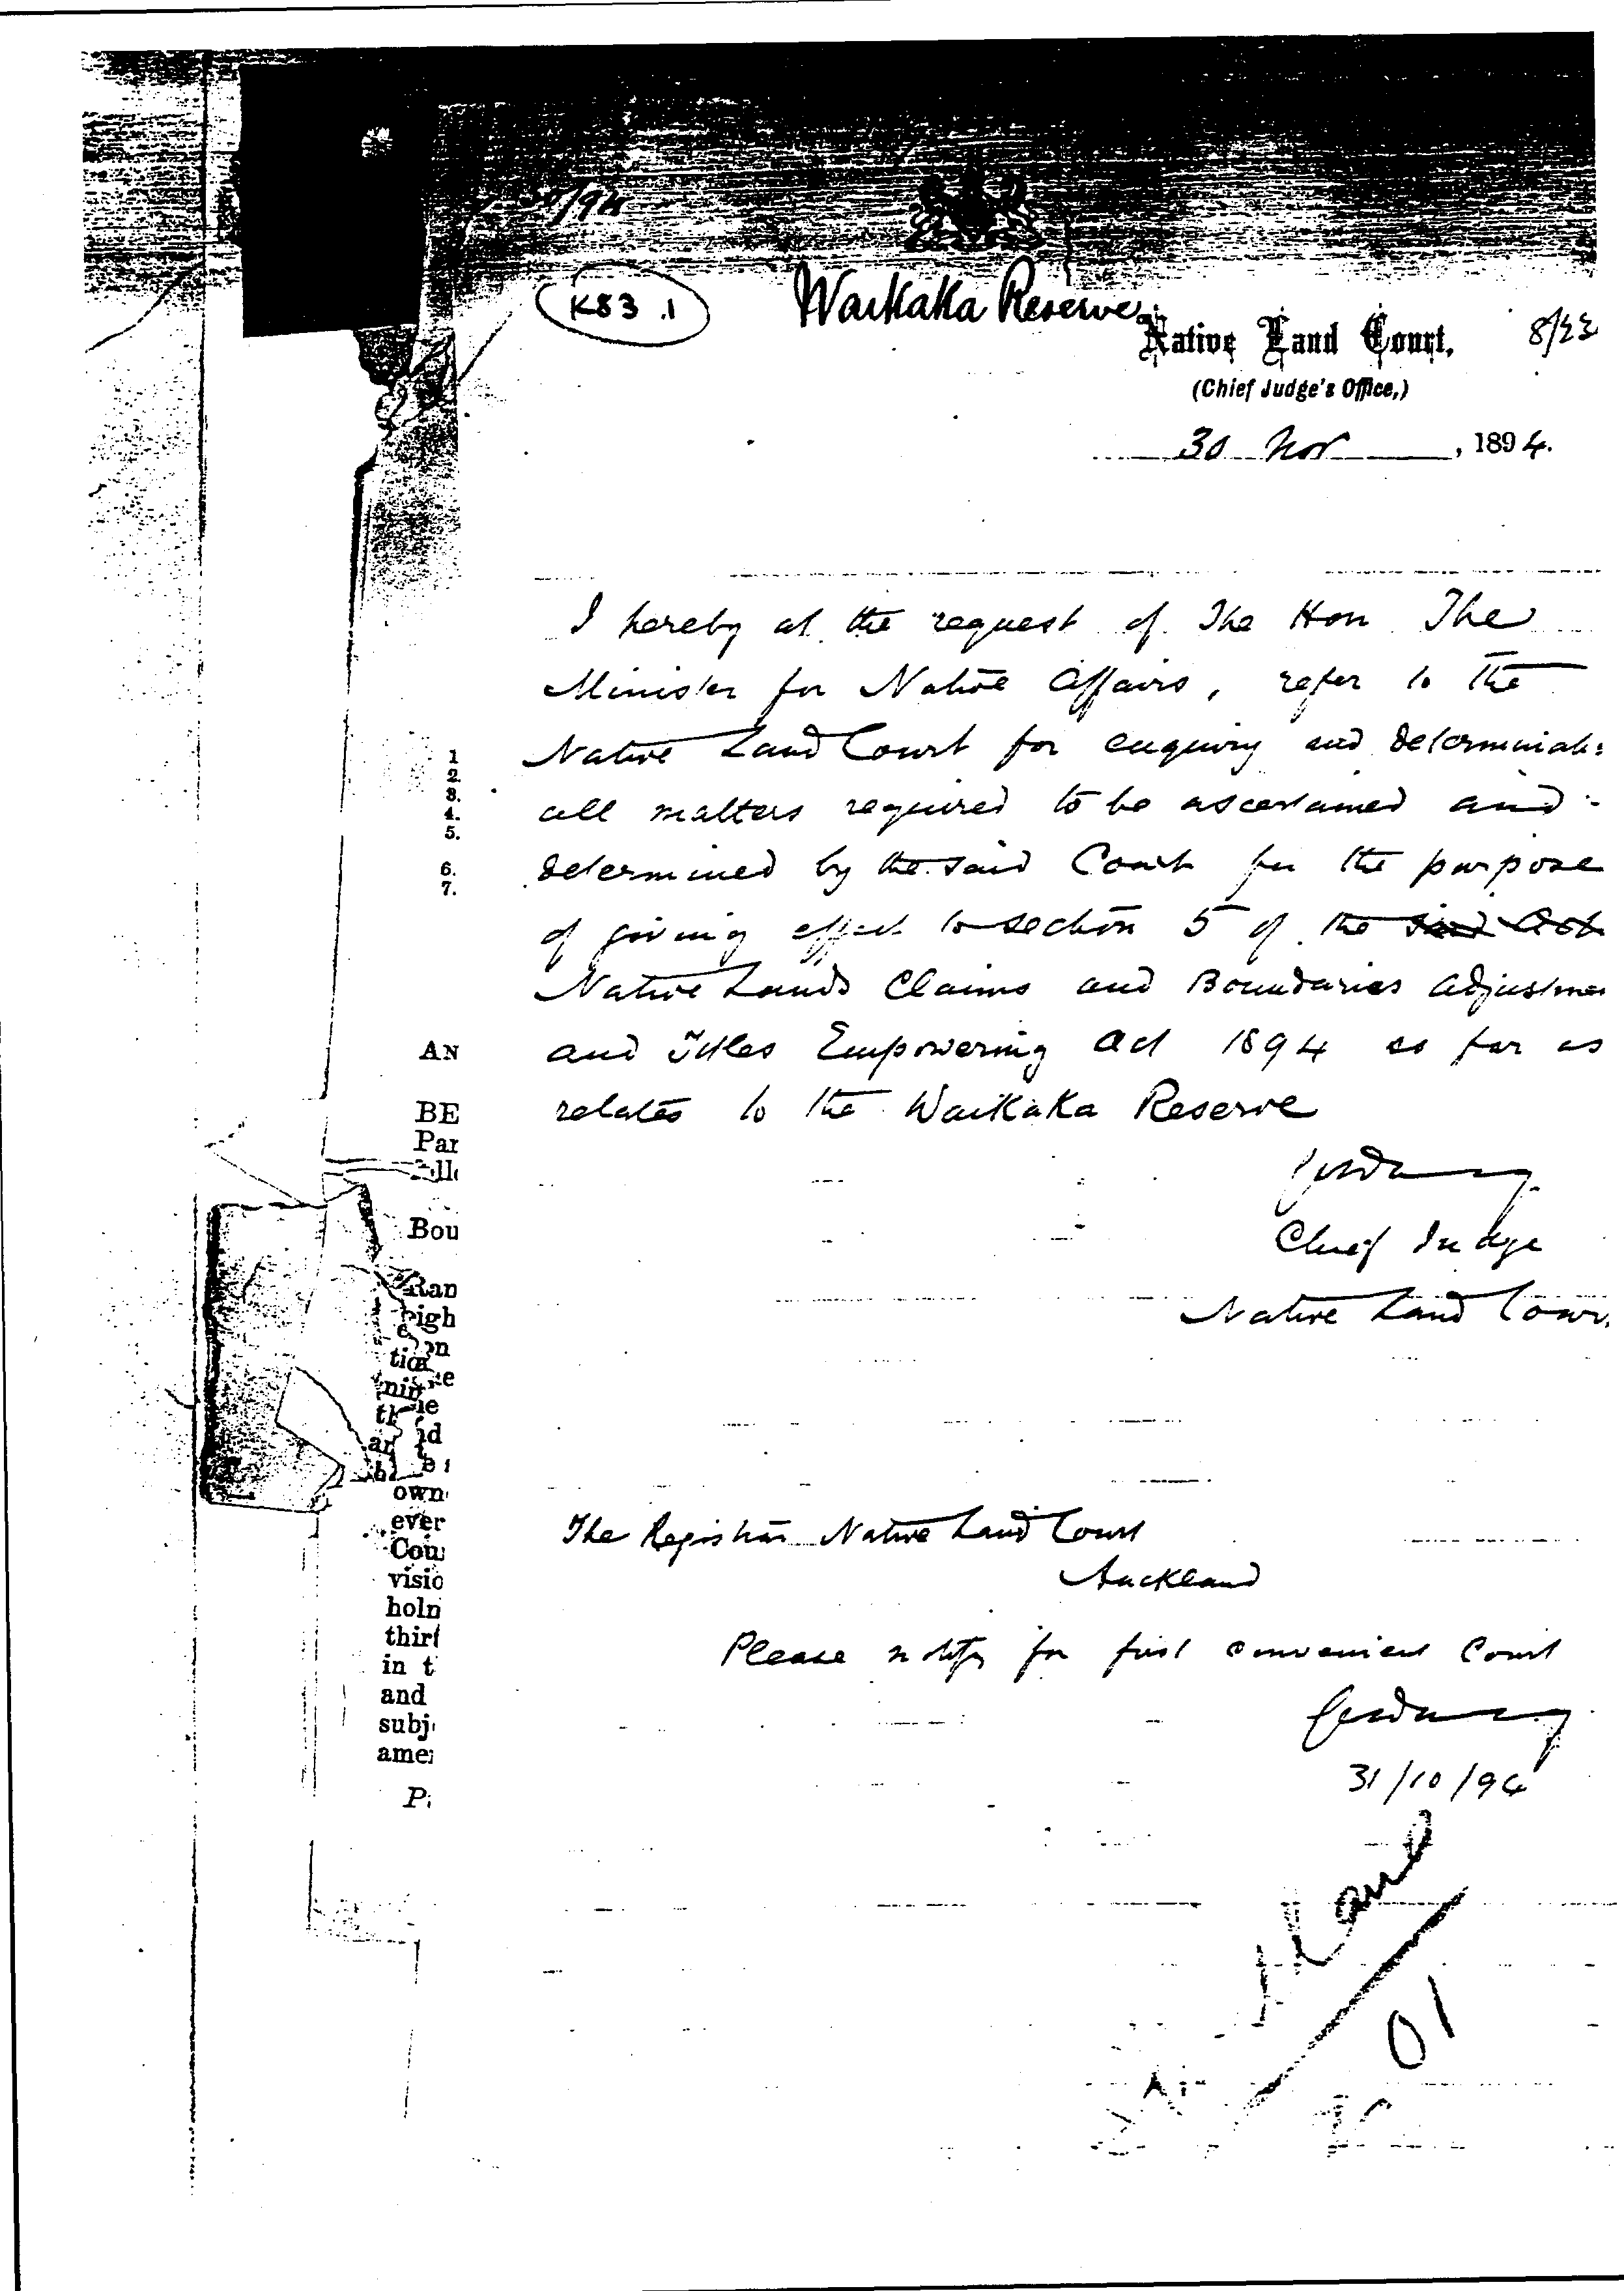 K83 .1
Waikaka Reserve
Native Land Court,
8/23
(Chief Judge's Office,)
30 Nov , 1894.
I hereby at the request of The Hon The
Minister for Native Affairs, refer to the
Native Land Court for enquiry and determinati
all matters required to be ascertained and
determined by the said Court for the purpose
of giving effect to section 5 of the said Act
Native Lands Claims and Boundaries Adjustme
and Titles Empowering Act 1894 as far as
relates to the Waikaka Reserve
Chief Judge
Native Land Cour
The Registrar Native Land Court
Auckland
Please notify for first convenient Court
31/10/94
01
1
2.
3.
4.
5.
6.
7.
AN
BE
Par
Bou
Ran
eigh
own
ever
Cou
visio
holn
thirt
in t
and
subj
amer
P